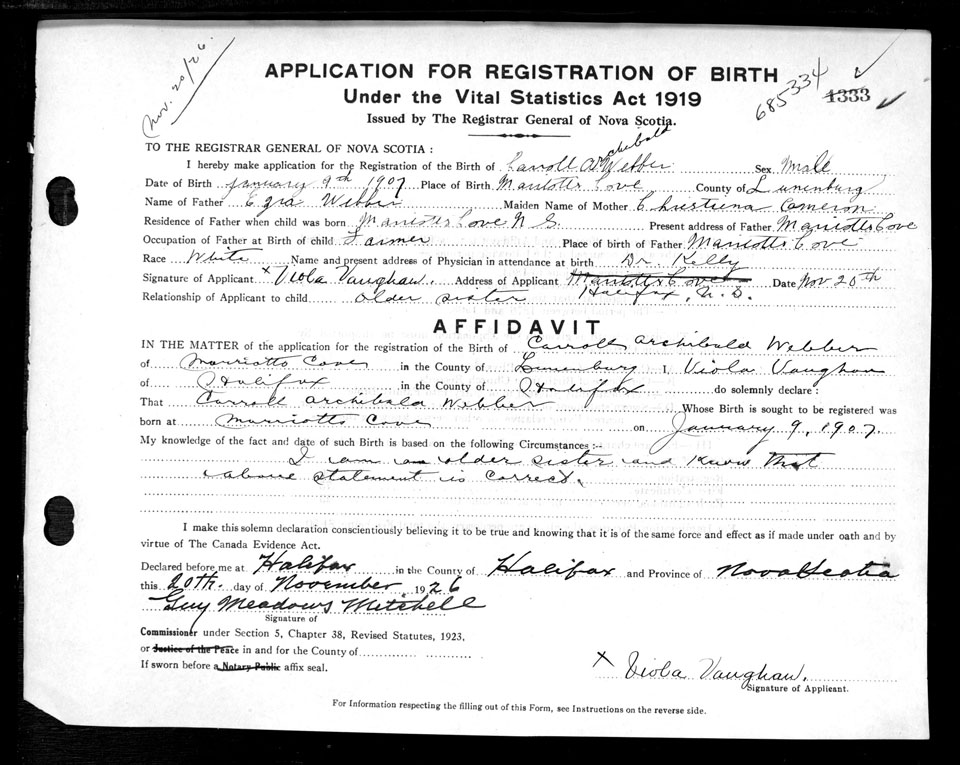 Nov. 20/26.
APPLICATION FOR REGISTRATION OF BIRTH
Under the Vital Statistics Act 1919
Issued by The Registrar General of Nova Scotia.
685334
1333
TO THE REGISTRAR GENERAL OF NOVA SCOTIA :
I hereby make application for the Registration of the Birth of Carroll Archibald Webber Sex Male
Date of Birth January 9th 1907 Place of Birth Marriotts Cove County of Lunenburg
Name of Father Ezra Webber Maiden Name of Mother Christiena Cameron
Residence of Father when child was born Marriotts Cove N S. Present address of Father Marriotts Cove
Occupation of Father at Birth of child Farmer Place of birth of Father Marriotts Cove
Race White Name and present address of Physician in attendance at birth Dr. Kelly
Signature of Applicant x Viola Vaughan. Address of Applicant Marriotts Cove Date Nov 20th
Relationship of Applicant to child older sister Halifax, N. S.
AFFIDAVIT
IN THE MATTER of the application for the registration of the Birth of Carroll Archibald Webber
of Marriotts Cove in the County of Lunenburg I, Viola Vaughan
of Halifax in the County of Halifax do solemnly declare :
That Carroll Archibald Webber Whose Birth is sought to be registered was
born at Marriotts Cove on January 9, 1907.
My knowledge of the fact and date of such Birth is based on the following Circumstances :-
I am an older sister and know that
above statement is correct.
I make this solemn declaration conscientiously believing it to be true and knowing that it is of the same force and effect as if made under oath and by
virtue of The Canada Evidence Act.
Declared before me at Halifax in the County of Halifax and Province of Nova Scotia
this 20th. day of November 1926
Guy Meadows Mitchell
Signature of
Commissioner under Section 5, Chapter 38, Revised Statutes, 1923,
or Justice of the Peace in and for the County of
If sworn before a Notary Public affix seal.
x Viola Vaughan.
Signature of Applicant.
For Information respecting the filling out of this Form, see Instructions on the reverse side.